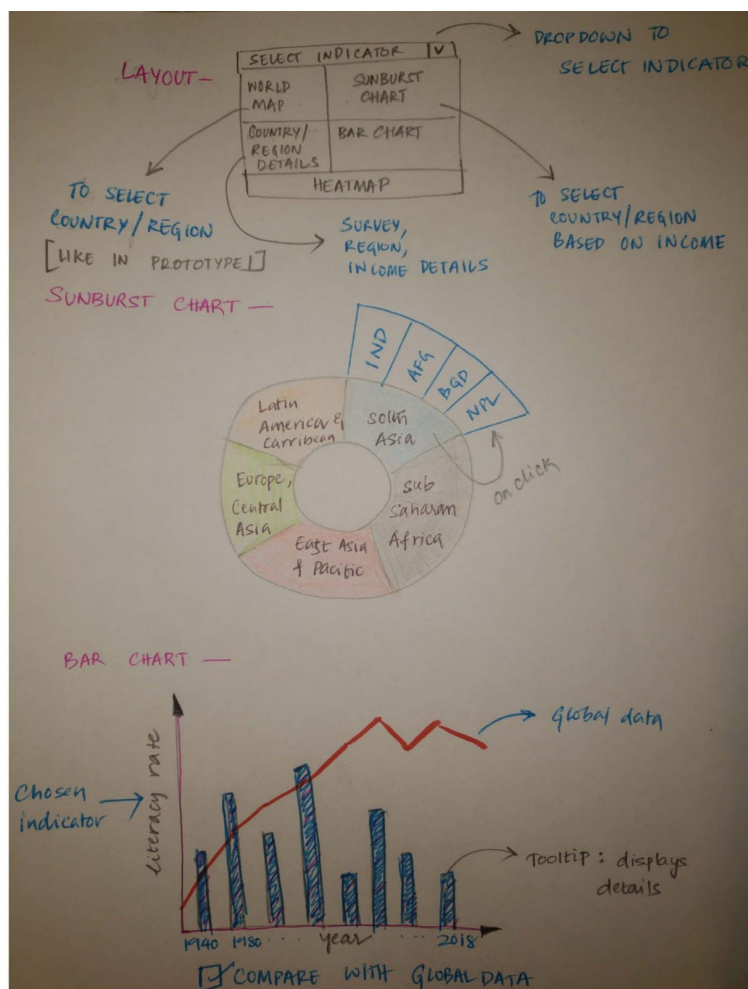 LAYOUT —
SELECT INDICATOR V
WORLD
MAP
SUNBURST
CHART
COUNTRY/
REGION
DETAILS
BAR CHART
HEATMAP
DROPDOWN TO
SELECT INDICATOR
TO SELECT
COUNTRY/REGION
[LIKE IN PROTOTYPE 1]
SURVEY,
REGION,
INCOME DETAILS
TO SELECT
COUNTRY/REGION
BASED ON INCOME
SUNBURST CHART —
IND
AFG
BGD
NPL
Latin
America &
Carribean
South
Asia
on click
Europe,
Central
Asia
Sub
Saharan
Africa
East Asia
& Pacific
BAR CHART —
Global data
literacy rate
Chosen
indicator
Tooltip : displays
details
1940 1980 . . . . year . . . 2018
COMPARE WITH GLOBAL DATA